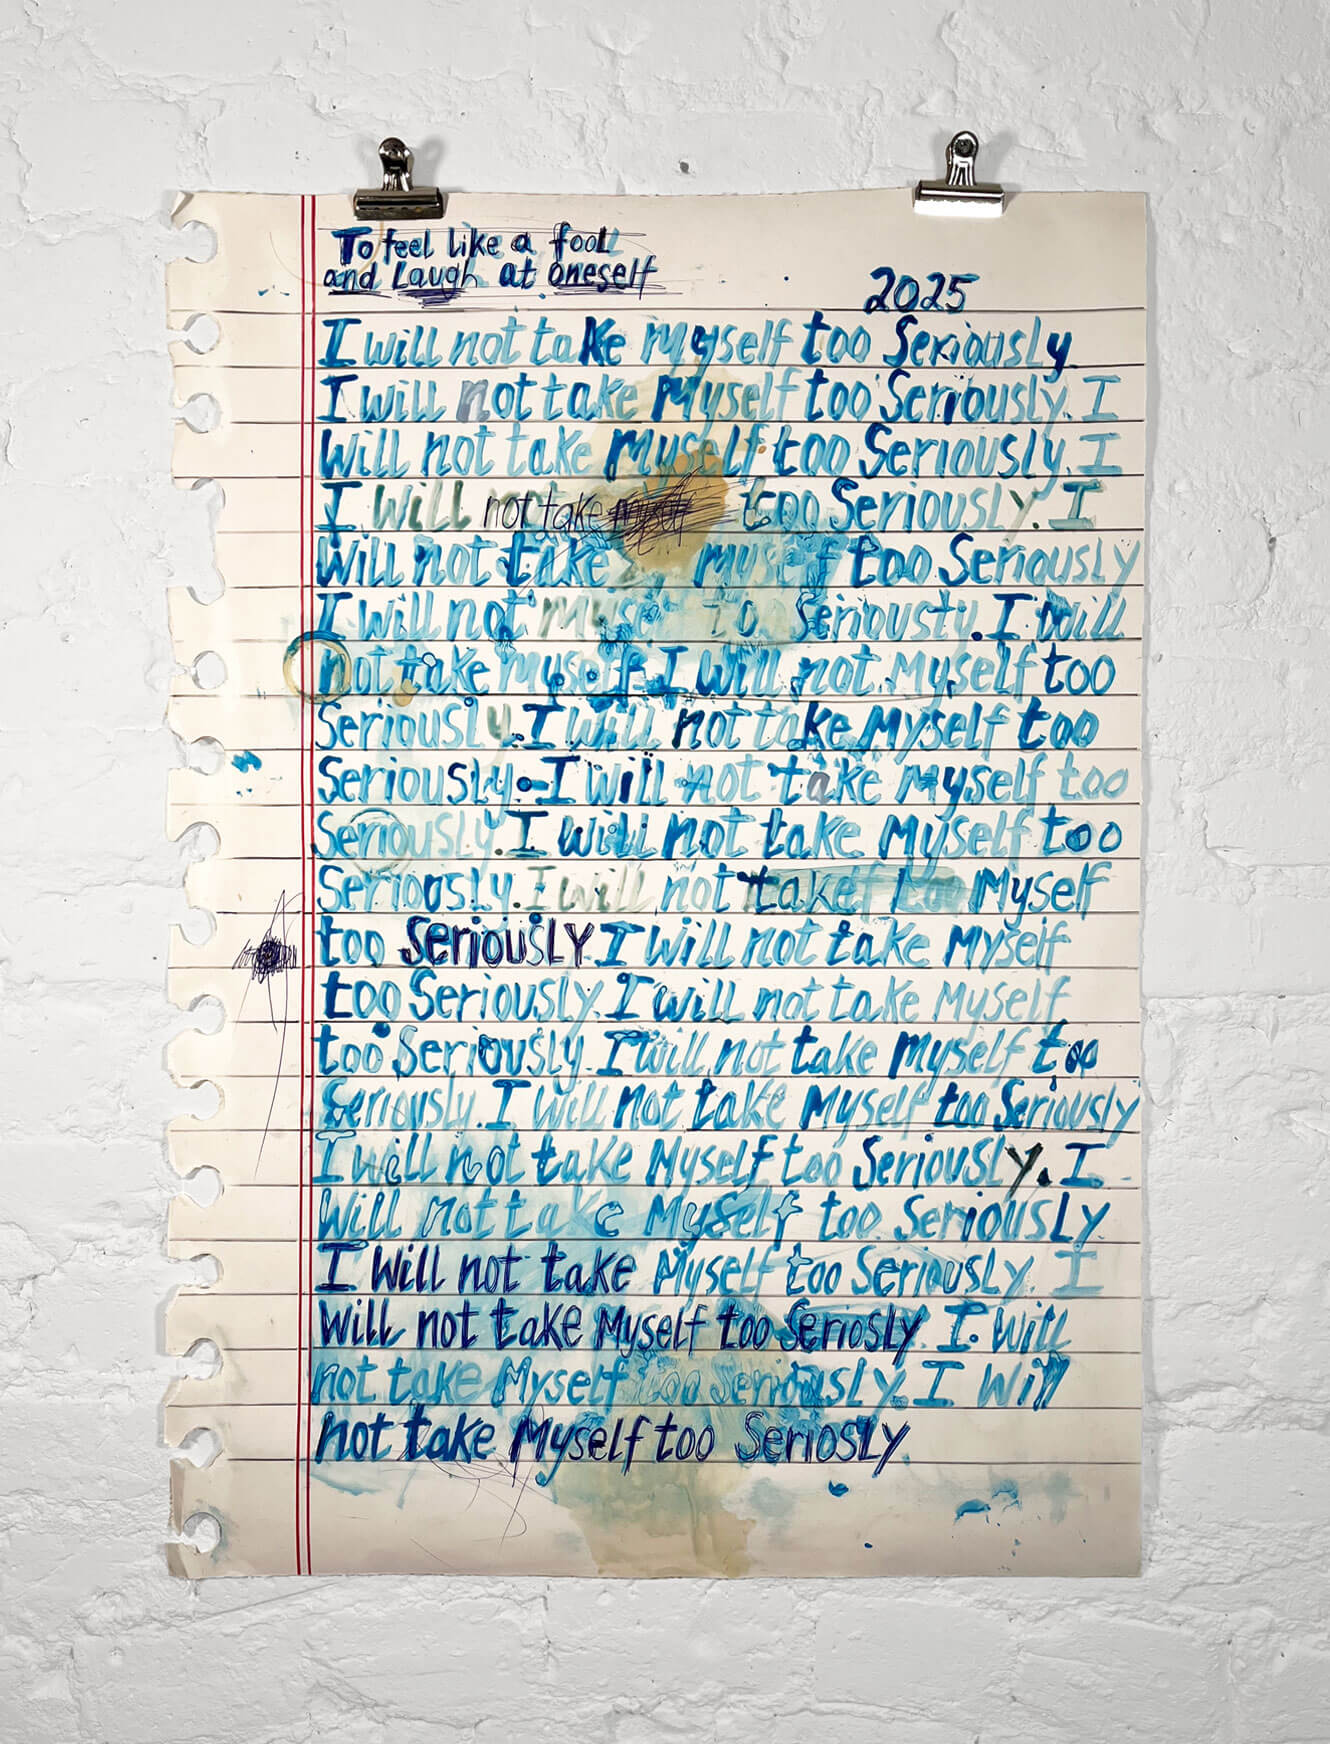 To feel like a fool
and Laugh at oneself
2025
I will not take myself too Seriously
I will not take Myself too Seriously. I
Will not take Myself too Seriously. I
I will not take myself too Seriously. I
Will not take myself too Seriously
I will not myse to Seriously I will
not take myself. I will not Myself too
Seriously. I will not take Myself too
Seriously. I will not take Myself too
Seriously. I will not take Myself too
Seriously. I will not take Myself
too SeriousLY. I will not take Myself
too Seriously. I will not take Myself
too Seriously. I will not take Myself too
Seriously. I will not take Myself too Seriously
I will not take Myself too Seriously. I
Will not take Myself too Seriously.
I Will not take Myself too Seriously. I
Will not take Myself too Seriosly. I Will
not take Myself too Seriously. I Will
not take Myself too Seriosly.